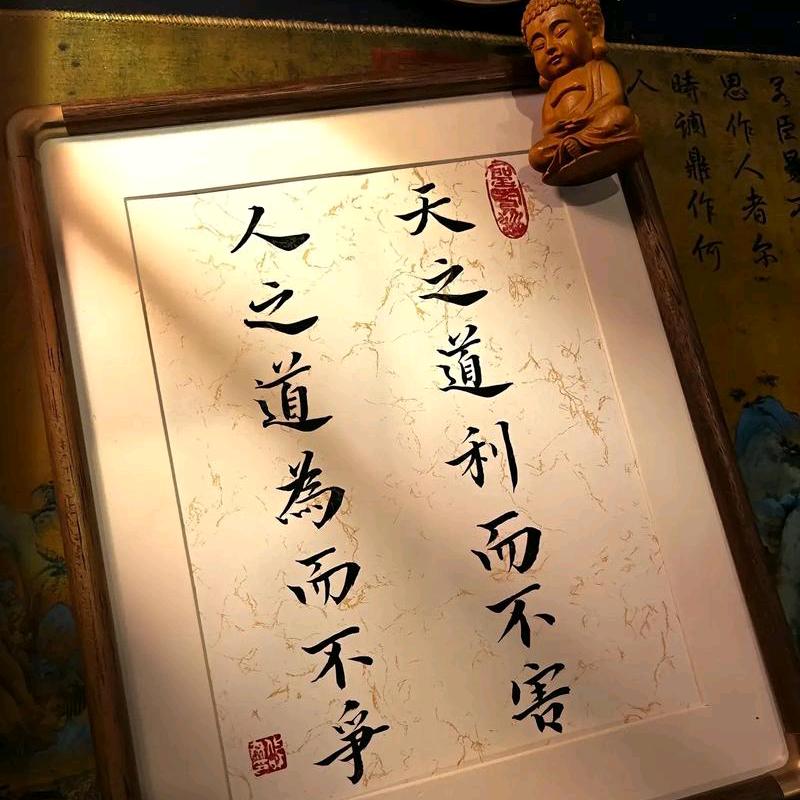 天之道利而不害
人之道為而不爭
思作人者尔
時調鼎作何
人